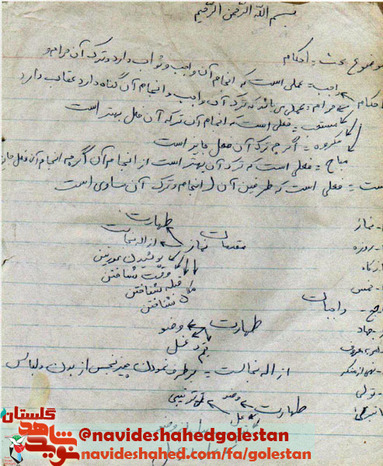 بسم الله الرحمن الرحیم
موضوع بحث = احکام
احکام واجب = عملی است که انجام آن واجب و ثواب دارد و ترک آن حرام و
حرام = عملی می باشد که ترک آن واجب و انجام آن گناه دارد عقاب دارد
مستحب = فعلی است که انجام آن از ترک آن بهتر است
مکروه = اگر چه ترک آن فعل جایز است
مباح = فعلی است که ترک آن بهتر است از انجام آن اگر چه انجام آن فعل جایز
است = فعلی است که طرفین آن از انجام و ترک آن مساوی است
طهارت
نماز مقدمات نماز ازاله نجاست
روزه پوشیدن عورتین
زکاة وقت شناختن
خمس قبله شناختن
حج واجبات مکان شناختن
جهاد طهارت وضو
امر به معروف غسل
تیمم
نهی از منکر ازاله نجاست = برطرف نمودن چیز نجس از بدن و لباس
تولی طهارت وضو ترتیبی
غسل
گلستان
شاهد
نوید
@navideshahedgolestan
navideshahed.com/fa/golestan